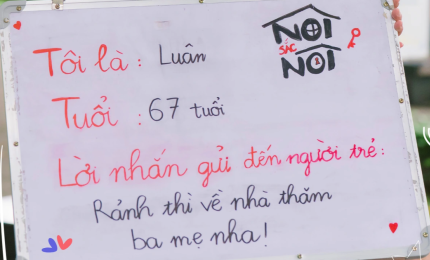 Tôi là : Luân
NƠI
SẮC
NƠI
Tuổi : 67 tuổi
Lời nhắn gửi đến người trẻ :
Rảnh thì về nhà thăm
ba mẹ nha!